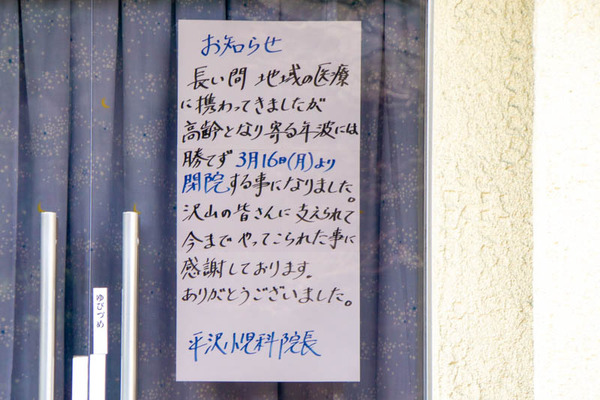 お知らせ
長い間 地域の医療
に携わってきましたが
高齢となり寄る年波には
勝てず3月16日(月)より
閉院する事になりました。
沢山の皆さんに支えられて
今までやってこられた事に
感謝しております。
ありがとうございました。
平沢小児科院長
ゆびづめ